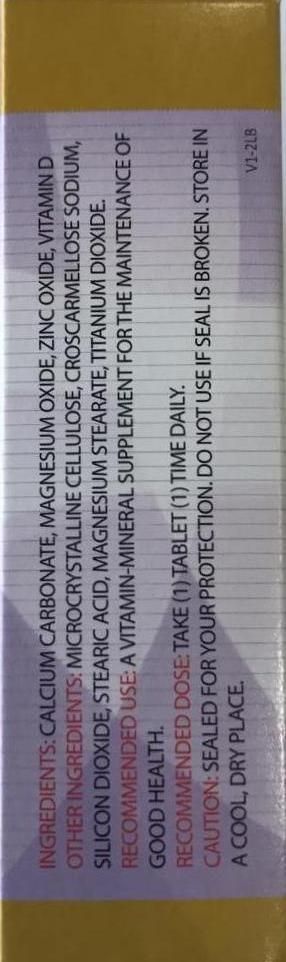 INGREDIENTS: CALCIUM CARBONATE, MAGNESIUM OXIDE, ZINC OXIDE, VITAMIN D
OTHER INGREDIENTS: MICROCRYSTALLINE CELLULOSE, CROSCARMELLOSE SODIUM,
SILICON DIOXIDE, STEARIC ACID, MAGNESIUM STEARATE, TITANIUM DIOXIDE.
RECOMMENDED USE: A VITAMIN-MINERAL SUPPLEMENT FOR THE MAINTENANCE OF
GOOD HEALTH.
RECOMMENDED DOSE: TAKE (1) TABLET (1) TIME DAILY.
CAUTION: SEALED FOR YOUR PROTECTION. DO NOT USE IF SEAL IS BROKEN. STORE IN
A COOL, DRY PLACE.
V1-2LB